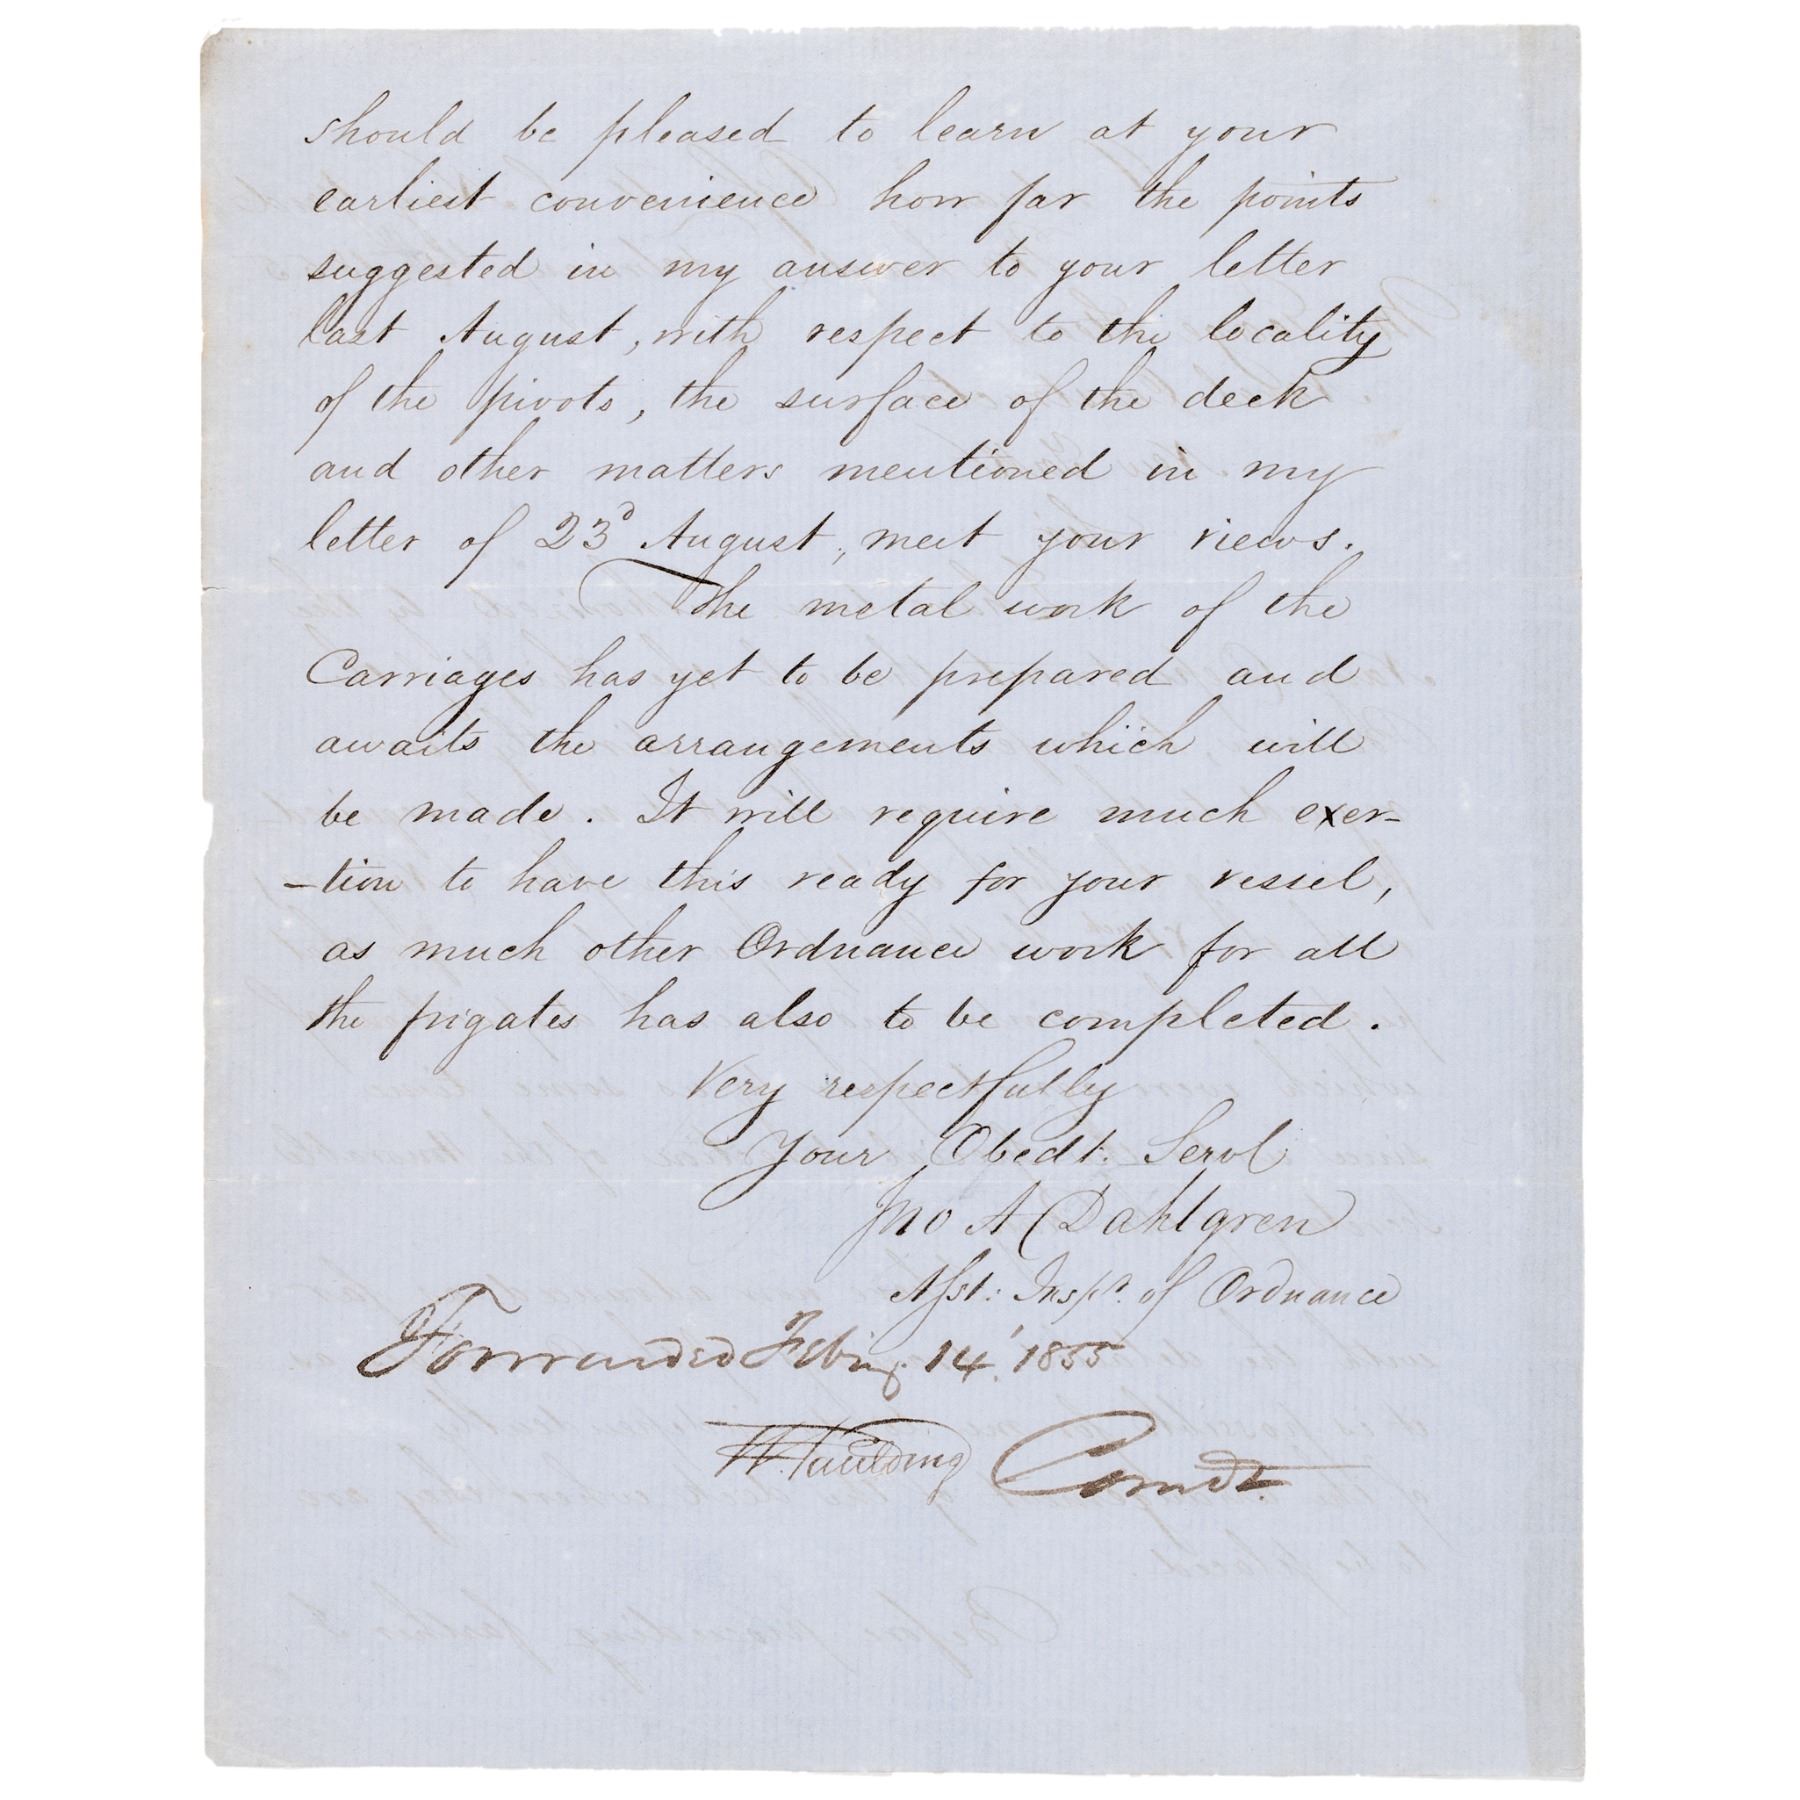 should be pleased to learn at your
earliest convenience how far the points
suggested in my answer to your letter
last August, with respect to the locality
of the pivots, the surface of the deck
and other matters mentioned in my
letter of 23d August, meet your views.
The metal work of the
Carriages has yet to be prepared and
awaits the arrangements which will
be made. It will require much exer-
-tion to have this ready for your vessel,
as much other Ordnance work for all
the frigates has also to be completed.
Very respectfully
Your Obedt. Servt
Jno A Dahlgren
Asst: Inspr. of Ordnance
Forwarded Febry. 14, 1855
H. Paulding Comdt.
Before proceeding further I
to be placed.